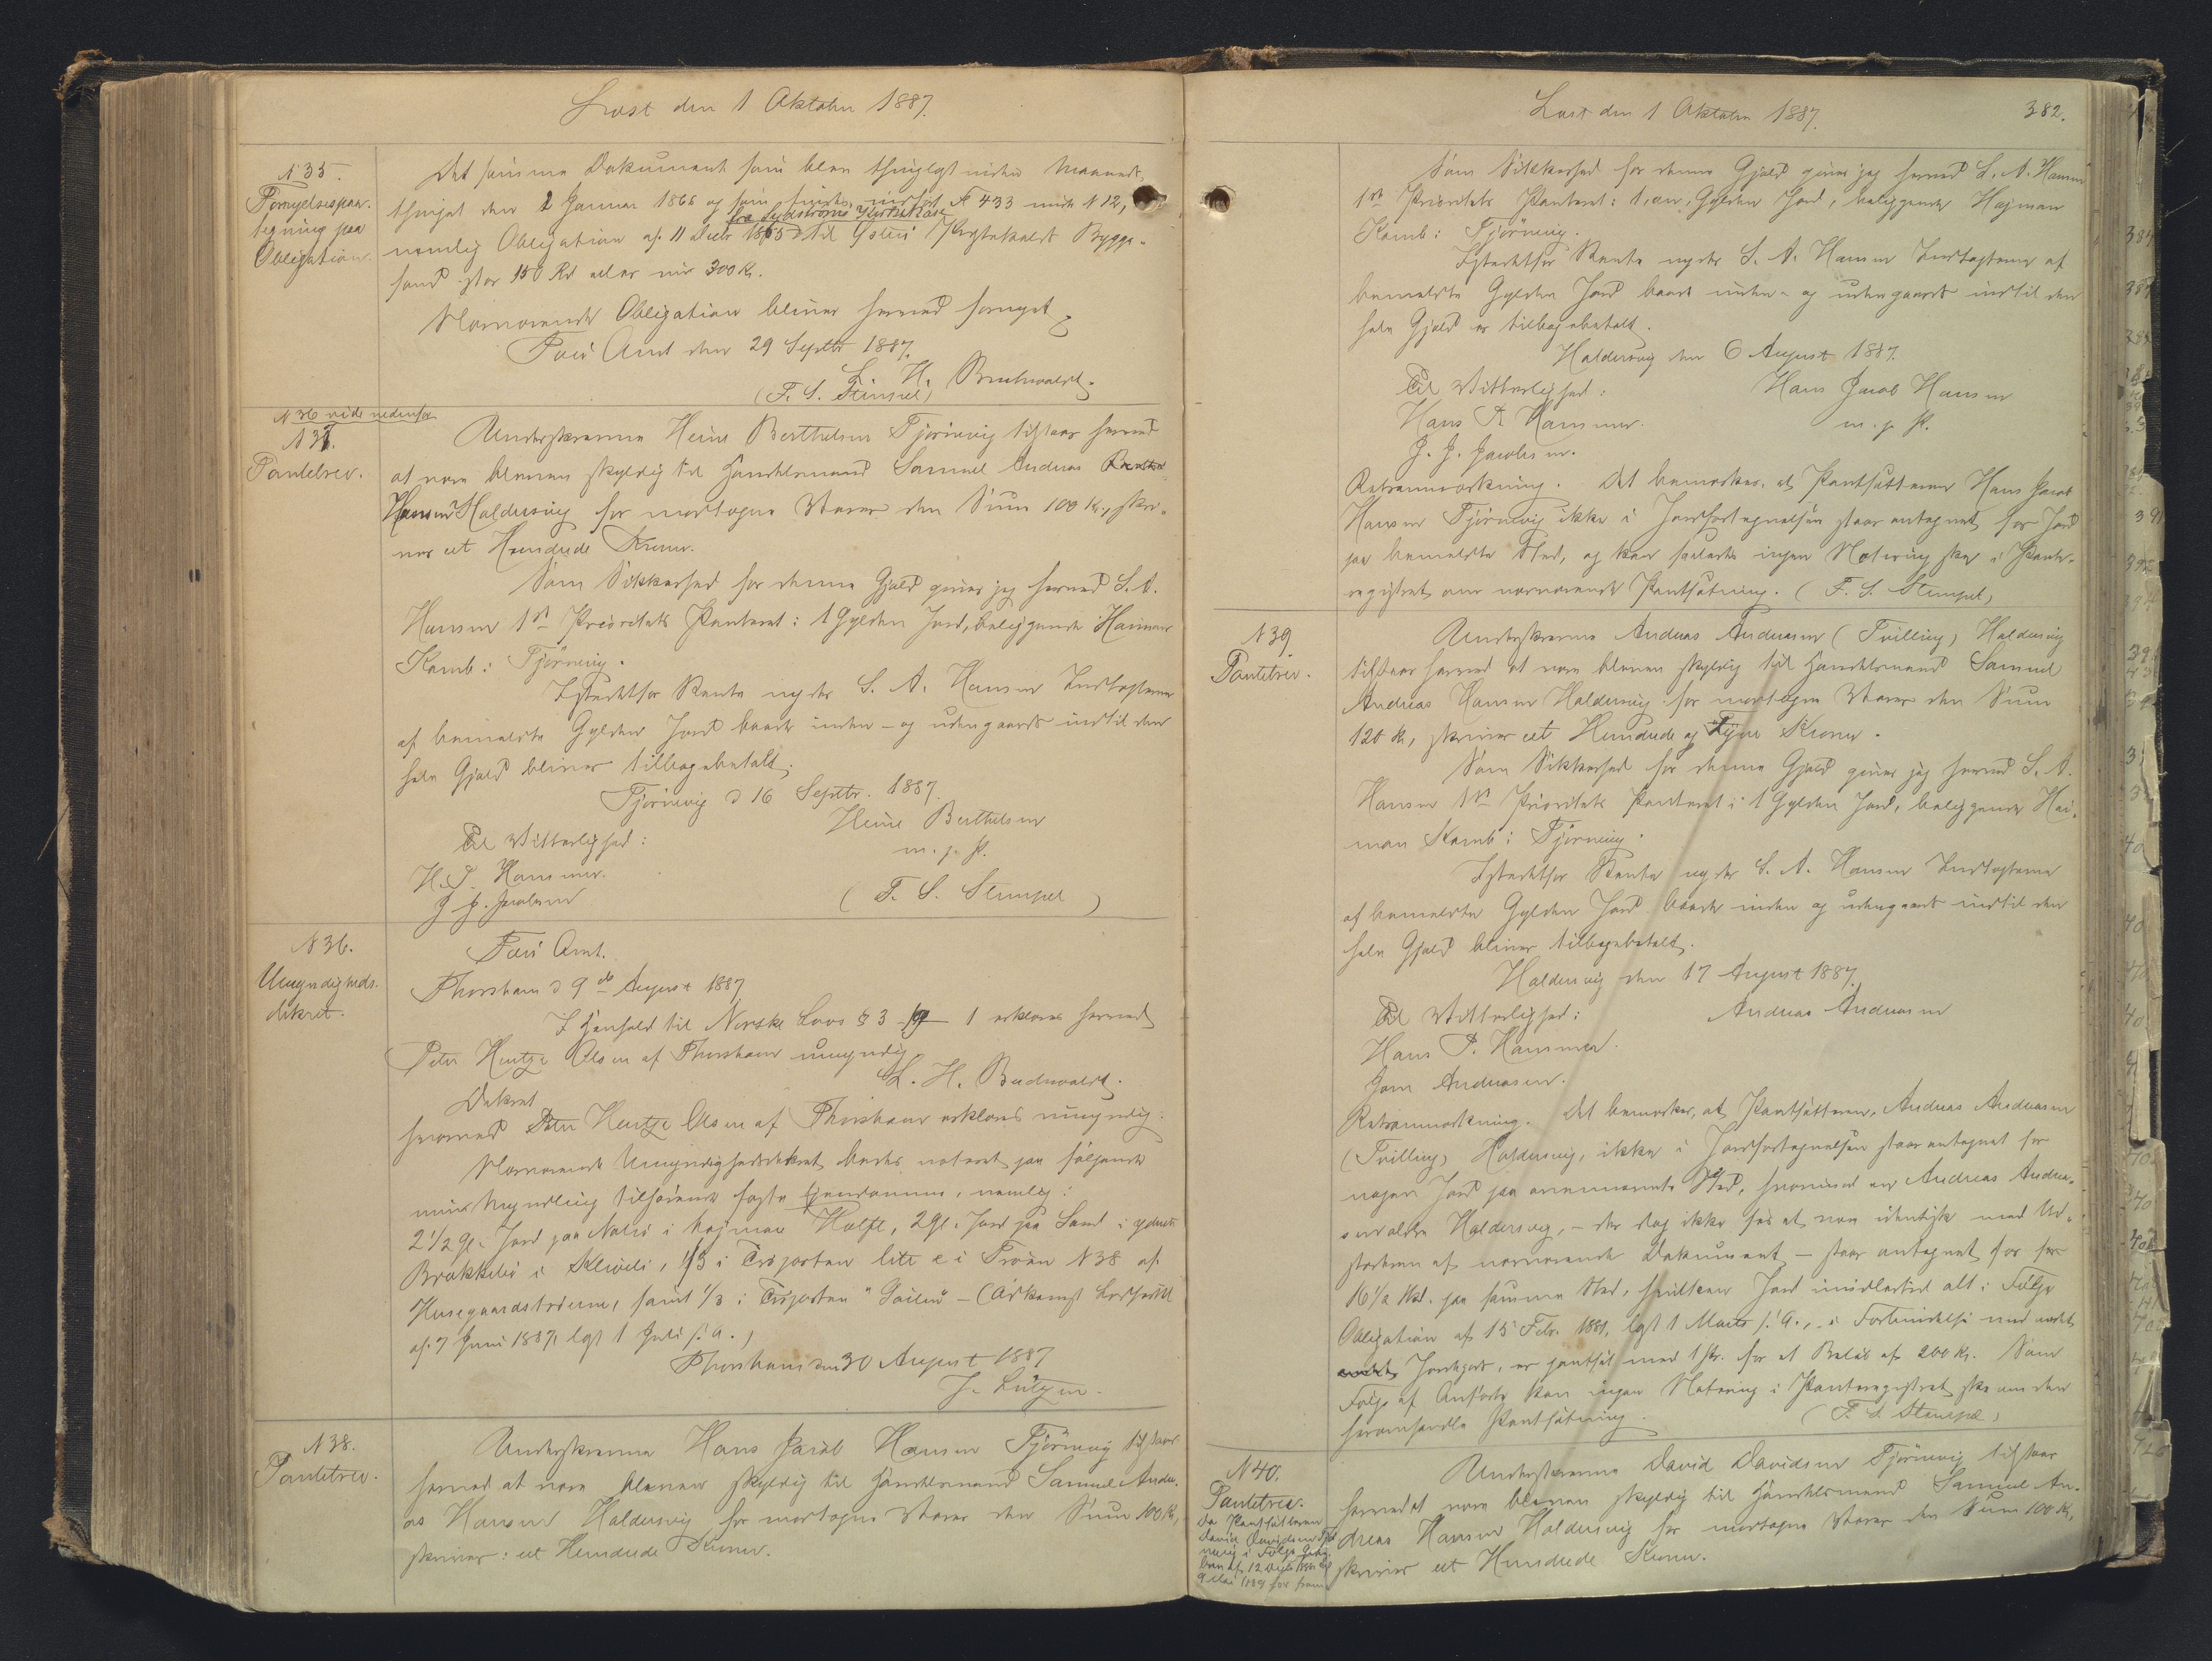 Læst den 1 Oktober 1887.
N 35.
Fornyelsespaa-
tegning paa
Obligation.
Det samme Dokument som blev thinglyst under Maaneds-
thinget den 2 Januar 1866 og som findes indført F. 433 under N 12,
fra Sydströmø Kirkekasse
nemlig Obligation af 11 Decbr 1865 til Österø Præstekalds Bygge-
fond stor 150 Rd eller nu 300 Kr.
Nærværende Obligation bliver herved fornyet
Færø Amt den 29 Septbr 1887.
L. H. Buchwaldt.
(F. S. Stempel)
N 36 vide nedenfor
N 37.
Pantebrev.
Underskrevne Heine Berthelsen Tjørnevig tilstaar herved
at være bleven skyldig til Handelsmand Samuel Andreas
Hansen Haldersvig for modtagne Varer den Sum 100 Kr., skri-
ver et Hundrede Kroner.
Som Sikkerhed for denne Gjæld giver jeg herved S. A.
Hansen 1ste Prioritets Panteret i 1 Gylden Jord, beliggende Haiman
Kamb i Tjørnevig.
Istedetfor Rente nyder S. A. Hansen Indtægterne
af bemeldte Gylden Jord baade inden- og udengaards indtil den
hele Gjæld bliver tilbagebetalt.
Tjørnevig d 16 Septbr. 1887.
Til Vitterlighed:
Heine Berthelsen
m. p. P.
H. P. Hammer.
J. J. Jacobsen
(F. S. Stempel)
N 36.
Umyndigheds-
dekret.
Færø Amt.
Thorshavn d 9de August 1887
I Henhold til Norske Lovs § 3-19-1 erklæres herved
Peter Hentze Olsen af Thorshavn umyndig.
L. H. Buchwaldt.
Dekret
hvorved Peter Hentze Olsen af Thorshavn erklæres umyndig.
Nærværende Umyndighedsdekret bedes noteret paa følgende
min Myndling tilhørende faste Ejendomme, nemlig:
2 1/2 Gl. Jord paa Nolsø i højmæe Hælft, 2 Gl. Jord paa Sand i
1/3 i Trøparten litr e i Trøen N 38 af
Husegaardstrøerne, samt 1/3 i Trøparten
af 7 Juni 1887, læst 1 Juli s. A.)
Thorshavn den 30 August 1887
J. Lützen.
N 38.
Pantebrev.
Underskrevne Hans Jacob Hansen Tjørnevig tilstaar
herved at være bleven skyldig til Handelsmand Samuel Andre-
as Hansen Haldersvig for modtagne Varer den Sum 100 Kr,
skriver: et Hundrede Kroner.
Læst den 1 Oktober 1887.
382.
Som Sikkerhed for denne Gjæld giver jeg herved S. A. Hansen
1ste Prioritets Panteret i 1, en, Gylden Jord, beliggende Hajman
Kamb i Tjørnevig.
Istedetfor Rente nyder S. A. Hansen Indtægterne af
bemeldte Gylden Jord baade inden- og udengaards indtil den
hele Gjæld er tilbagebetalt.
Haldersvig den 6 August 1887.
Til Vitterlighed:
Hans Jacob Hansen
m. p. P.
Hans P. Hammer.
J. J. Jacobsen.
Retsanmærkning. Det bemærkes, at Pantsætteren Hans Jacob
Hansen Tjørnevig ikke i Jordfortegnelsen staar antegnet for Jord
paa bemeldte Sted, og kan saaledes ingen Notering ske i Pante-
registret om nærværende Pantsætning. (F. S. Stempel)
N 39.
Pantebrev.
Underskrevne Andreas Andreasen (Tvilling) Haldersvig
tilstaar herved at være bleven skyldig til Handelsmand Samuel
Andreas Hansen Haldersvig for modtagne Varer den Sum
120 Kr, skriver et Hundrede og Tyve Kroner.
Som Sikkerhed for denne Gjæld giver jeg herved S. A.
Hansen 1ste Prioritets Panteret i 1 Gylden Jord, beliggende Hai-
man Kamb i Tjørnevig.
Istedetfor Rente nyder S. A. Hansen Indtægterne
af bemeldte Gylden Jord baade inden og udengaards indtil den
hele Gjæld bliver tilbagebetalt.
Haldersvig den 17 August 1887.
Til Vitterlighed:
Andreas Andreasen
Hans P. Hammer.
Joen Andreasen.
Retsanmærkning. Det bemærkes, at Pantsætteren, Andreas Andreasen
(Tvilling) Haldersvig, ikke i Jordfortegnelsen staar antegnet for
nogen Jord paa ommeldte Sted, hvorimod en Andreas Andrea-
sen ældre Haldersvig, – der dog ikke sés at være identisk med Ud-
stederen af nærværende Dokument, – staar antegnet for
16 1/2 paa samme Sted, hvilken Jord imidlertid alt i Følge
Obligation af 15 Febr. 1881, læst 1 Marts s. A., i Forbindelse med andet
Jordgods, er pantsat med 1 Pr. for et Beløb af 200 Kr. Som
Følge af Anførte kan ingen Notering i Panteregistret ske om den
heromhandlede Pantsætning.
(F. S. Stempel)
N 40.
Pantebrev.
Da Pantsætteren
David Davidsen Tjør-
nevig i Følge
brev af 12 Decbr
9 Mai 1889 for
Underskrevne David Davidsen Tjørnevig tilstaar
herved at være bleven skyldig til Handelsmand Samuel An-
dreas Hansen Haldersvig for modtagne Varer den Sum 100 Kr,
skriver et Hundrede Kroner.